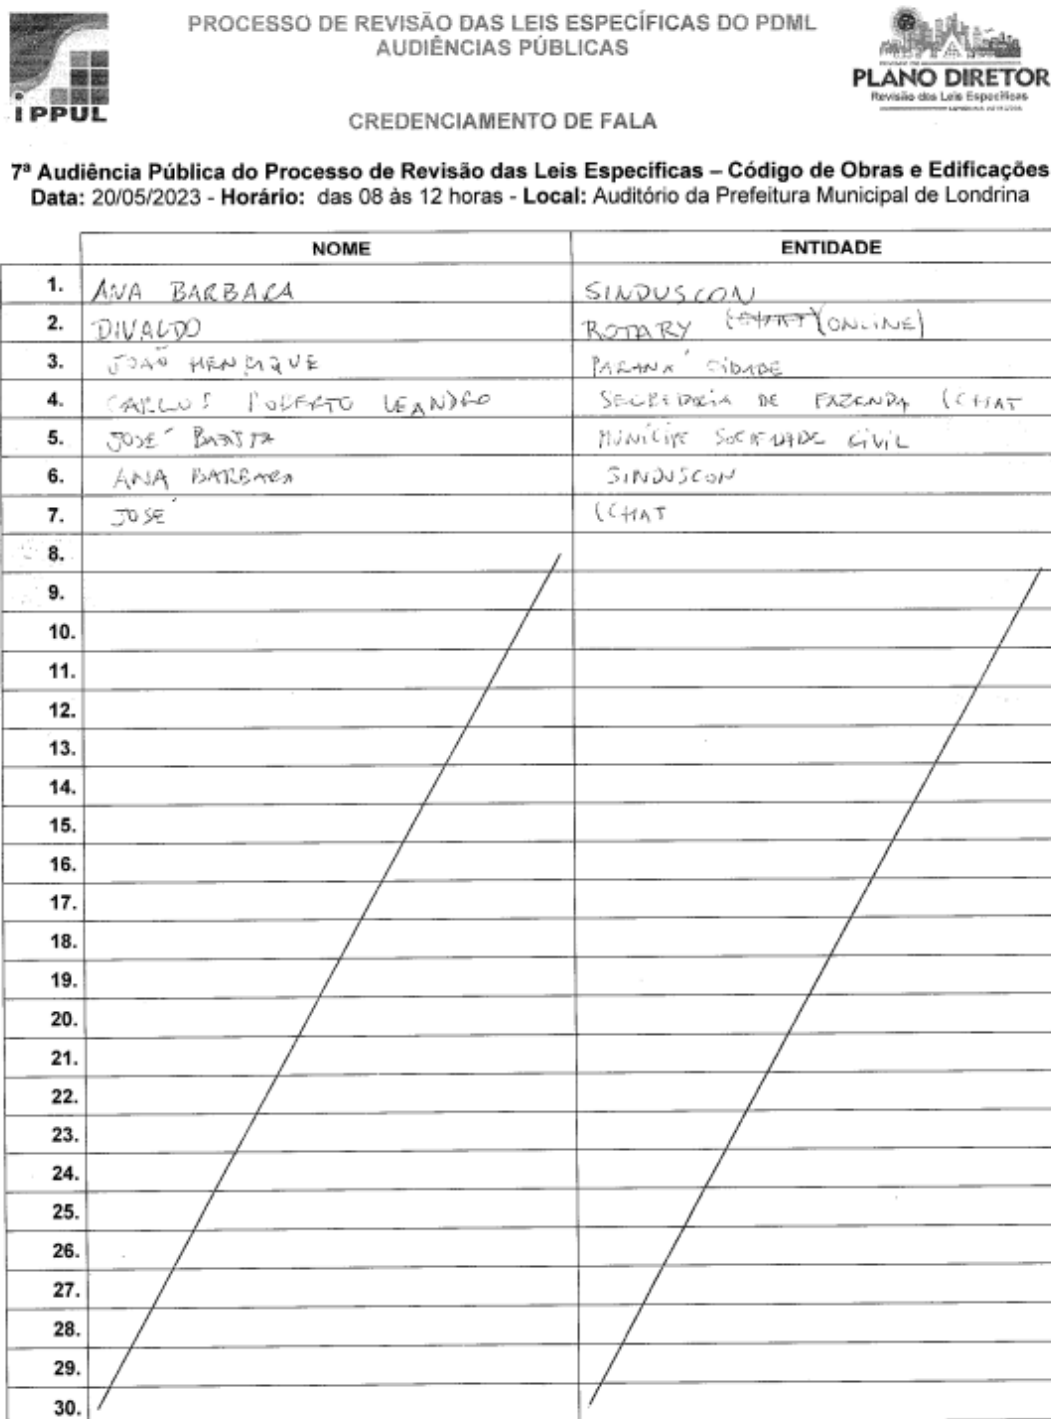 PROCESSO DE REVISÃO DAS LEIS ESPECÍFICAS DO PDML
AUDIÊNCIAS PÚBLICAS
IPPUL
PLANO DIRETOR
Revisão das Leis Específicas
CREDENCIAMENTO DE FALA
7ª Audiência Pública do Processo de Revisão das Leis Específicas – Código de Obras e Edificações
Data: 20/05/2023 - Horário: das 08 às 12 horas - Local: Auditório da Prefeitura Municipal de Londrina
NOME ENTIDADE
1. ANA BARBARA SINDUSCON
2. DIVALDO ROTARY (CHAT) (ONLINE)
3. JOÃO HENRIQUE PARANÁ CIDADE
4. CARLOS ROBERTO LEANDRO DE FAZENDA (CHAT
5. JOSÉ BATISTA MUNÍCIPE SOCIEDADE CIVIL
6. ANA BARBARA SINDUSCON
7. JOSÉ (CHAT
8.
9.
10.
11.
12.
13.
14.
15.
16.
17.
18.
19.
20.
21.
22.
23.
24.
25.
26.
27.
28.
29.
30.